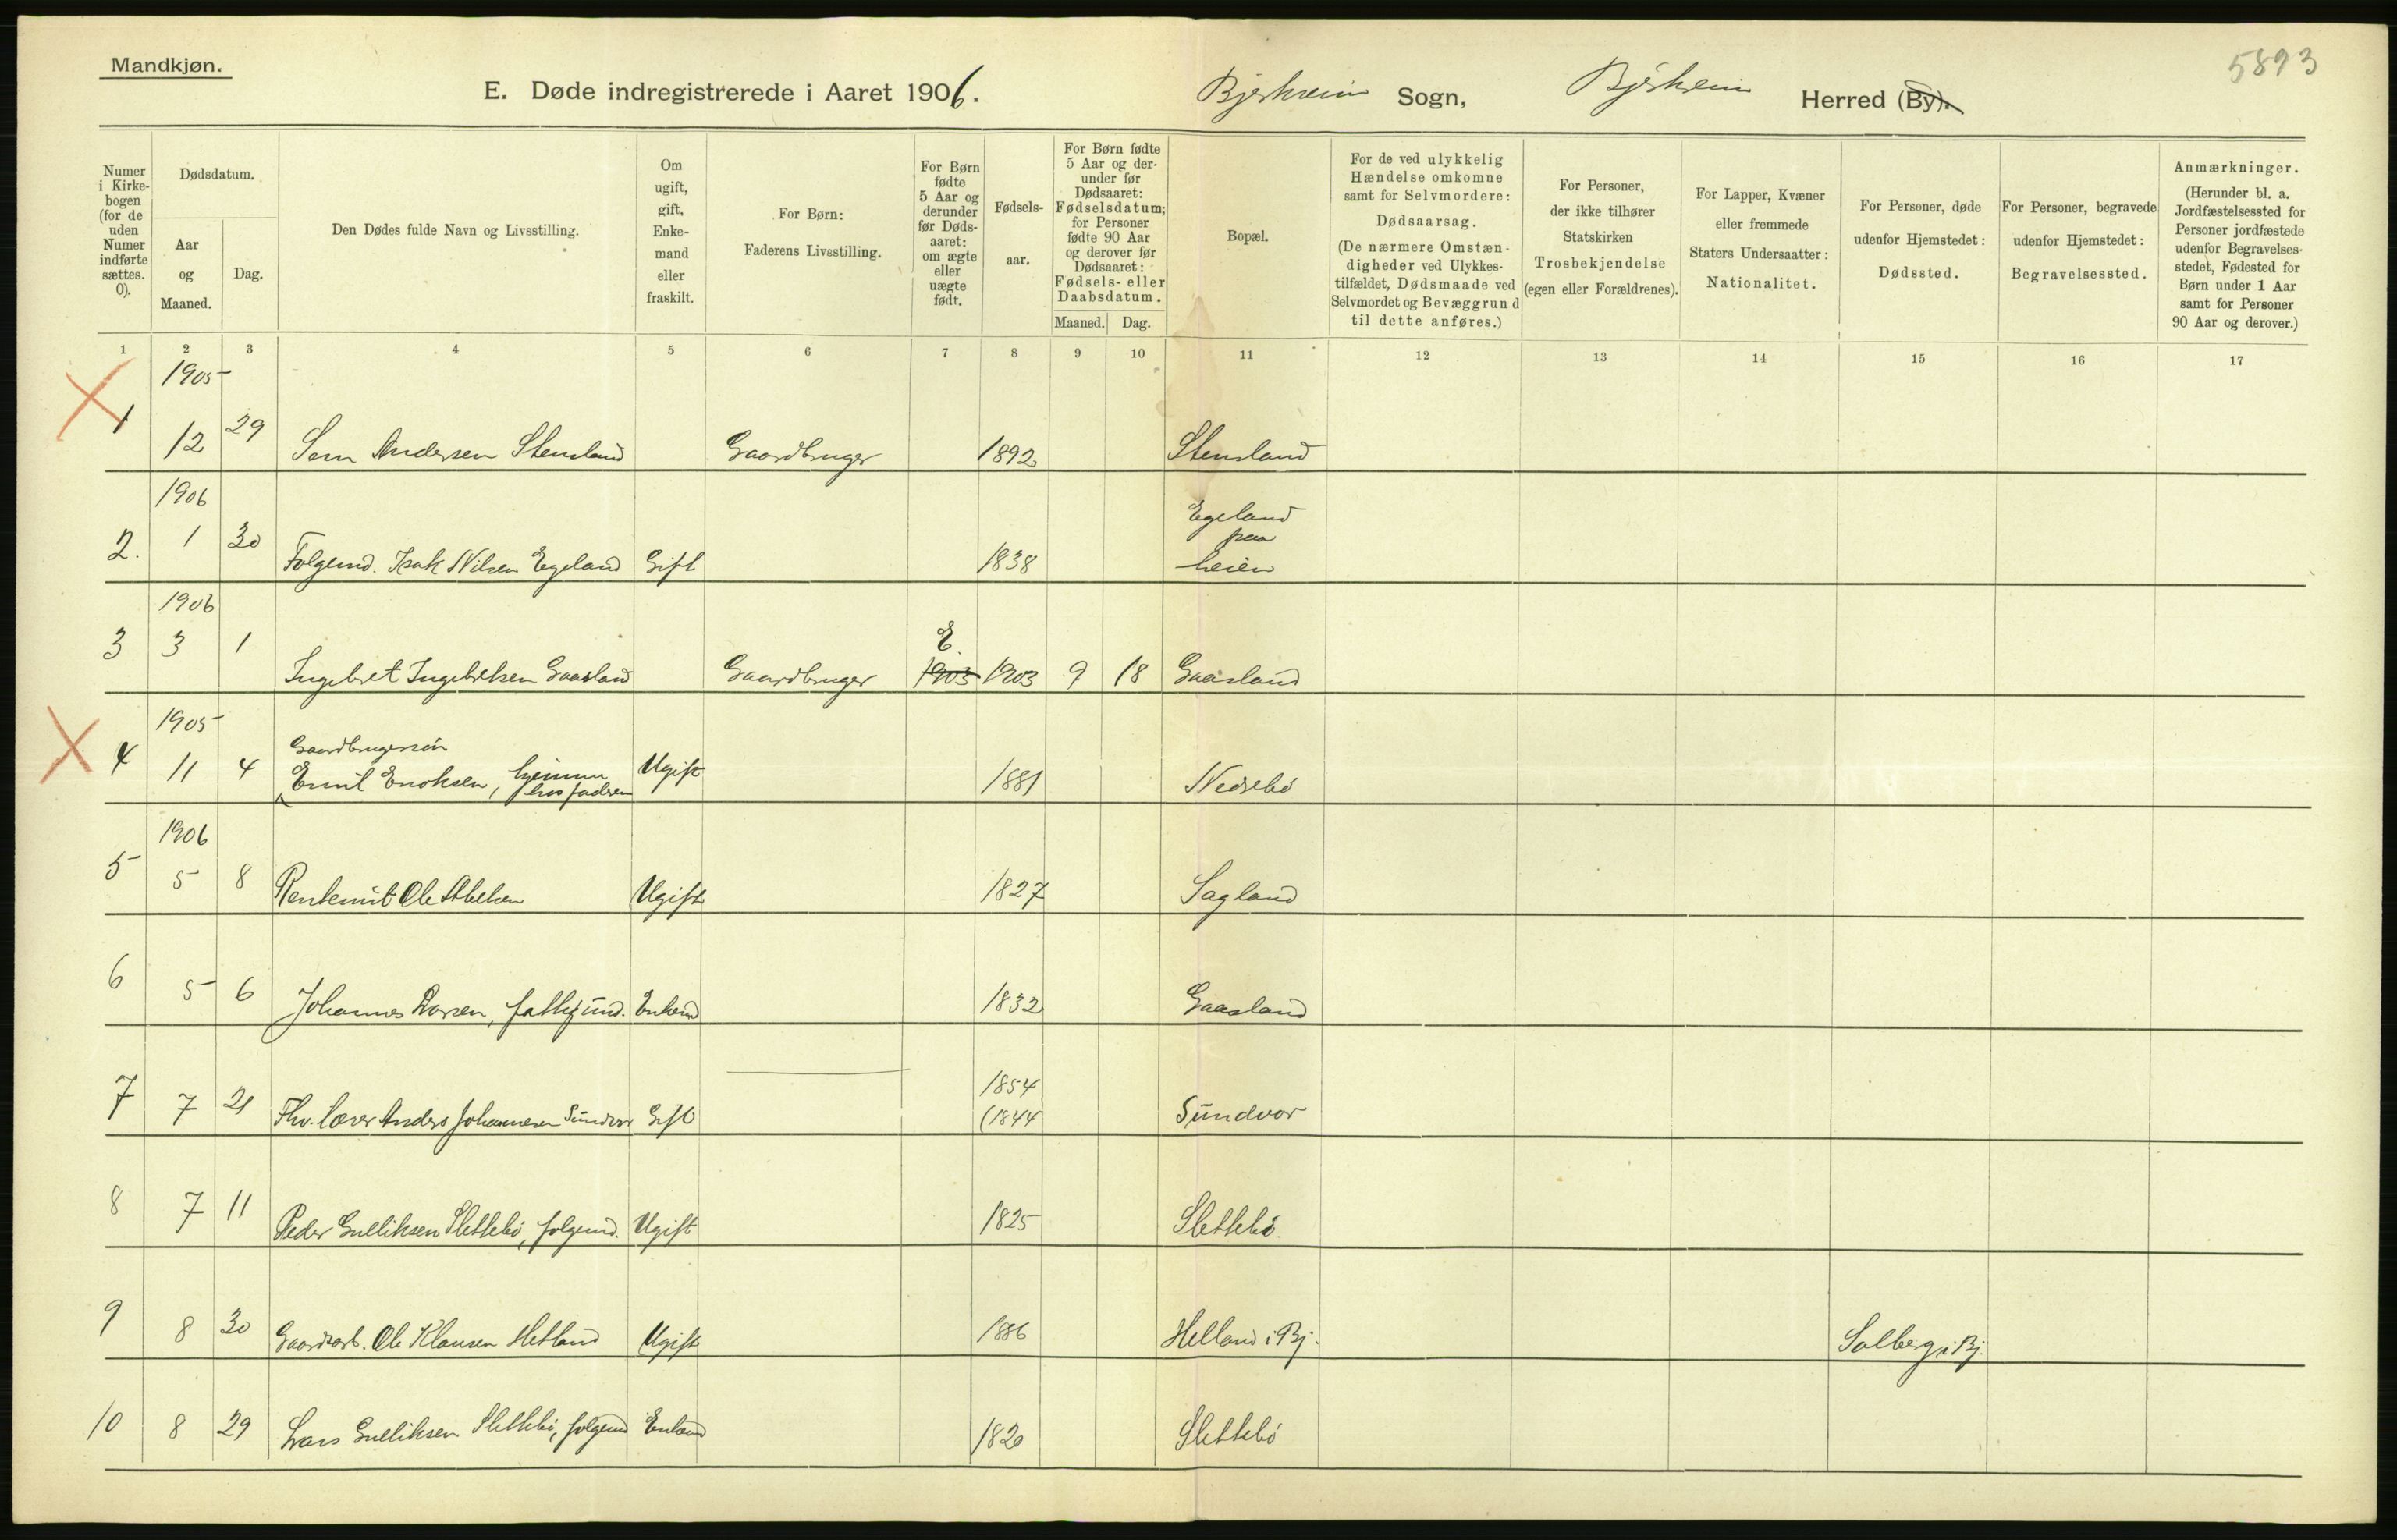 Mandkjøn.
5893
E. Døde indregistrerede i Aaret 1906.
Bjerkreim Sogn, Bjerkreim Herred (By).
Numer i Kirkebogen (for de uden Numer indførte sættes. 0).
Dødsdatum.
Aar og Maaned.
Dag.
Den Dødes fulde Navn og Livsstilling.
Om ugift, gift, Enkemand eller fraskilt.
For Børn: Faderens Livsstilling.
For Børn fødte 5 Aar og derunder før Dødsaaret: om ægte eller uægte født.
Fødselsaar.
For Børn fødte 5 Aar og derunder før Dødsaaret: Fødselsdatum; for Personer fødte 90 Aar og derover før Dødsaaret: Fødsels- eller Daabsdatum.
Maaned. Dag.
Bopæl.
For de ved ulykkelig Hændelse omkomne samt for Selvmordere: Dødsaarsag. (De nærmere Omstændigheder ved Ulykkestilfældet, Dødsmaade ved Selvmordet og Bevæggrund til dette anføres.)
For Personer, der ikke tilhører Statskirken Trosbekjendelse (egen eller Forældrenes).
For Lapper, Kvæner eller fremmede Staters Undersaatter: Nationalitet.
For Personer, døde udenfor Hjemstedet: Dødssted.
For Personer, begravede udenfor Hjemstedet: Begravelsessted.
Anmærkninger. (Herunder bl. a. Jordfæstelsessted for Personer jordfæstede udenfor Begravelsesstedet, Fødested for Børn under 1 Aar samt for Personer 90 Aar og derover.)
1 2 3 4 5 6 7 8 9 10 11 12 13 14 15 16 17
1905
1 12 29 Andersen Stensland Gaardbruger 1892 Stensland
1906
2. 1 30 Folgemd. Isak Nilsen Egeland Gift 1838 Egeland paa heien
1906
3 3 1 Ingebret Ingebretsen Gaasland Gaardbruger E. 1903 1903 9 18 Gaasland
1905
4 11 4 Gaardbrugersøn Emil Enoksen, hjemme hos faderen Ugift 1881 Nedrebö
1906
5 5 8 Ole Ugift 1827 Sagland
6 5 6 Johannes Enkemd 1832 Gaasland
7 7 21 Fhv. lærer Anders Johannesen Sundvor Gift 1854 (1844 Sundvor
8 7 11 Peder Gulliksen Slettebö, folgemd. Ugift 1825 Slettebö.
9 8 30 Gaardsarb. Ole Klausen Hetland Ugift 1886 Helland i Bj. Solberg i Bj.
10 8 29 Lars Gulliksen Slettebö, folgemd Enkemd 1820 Slettebö